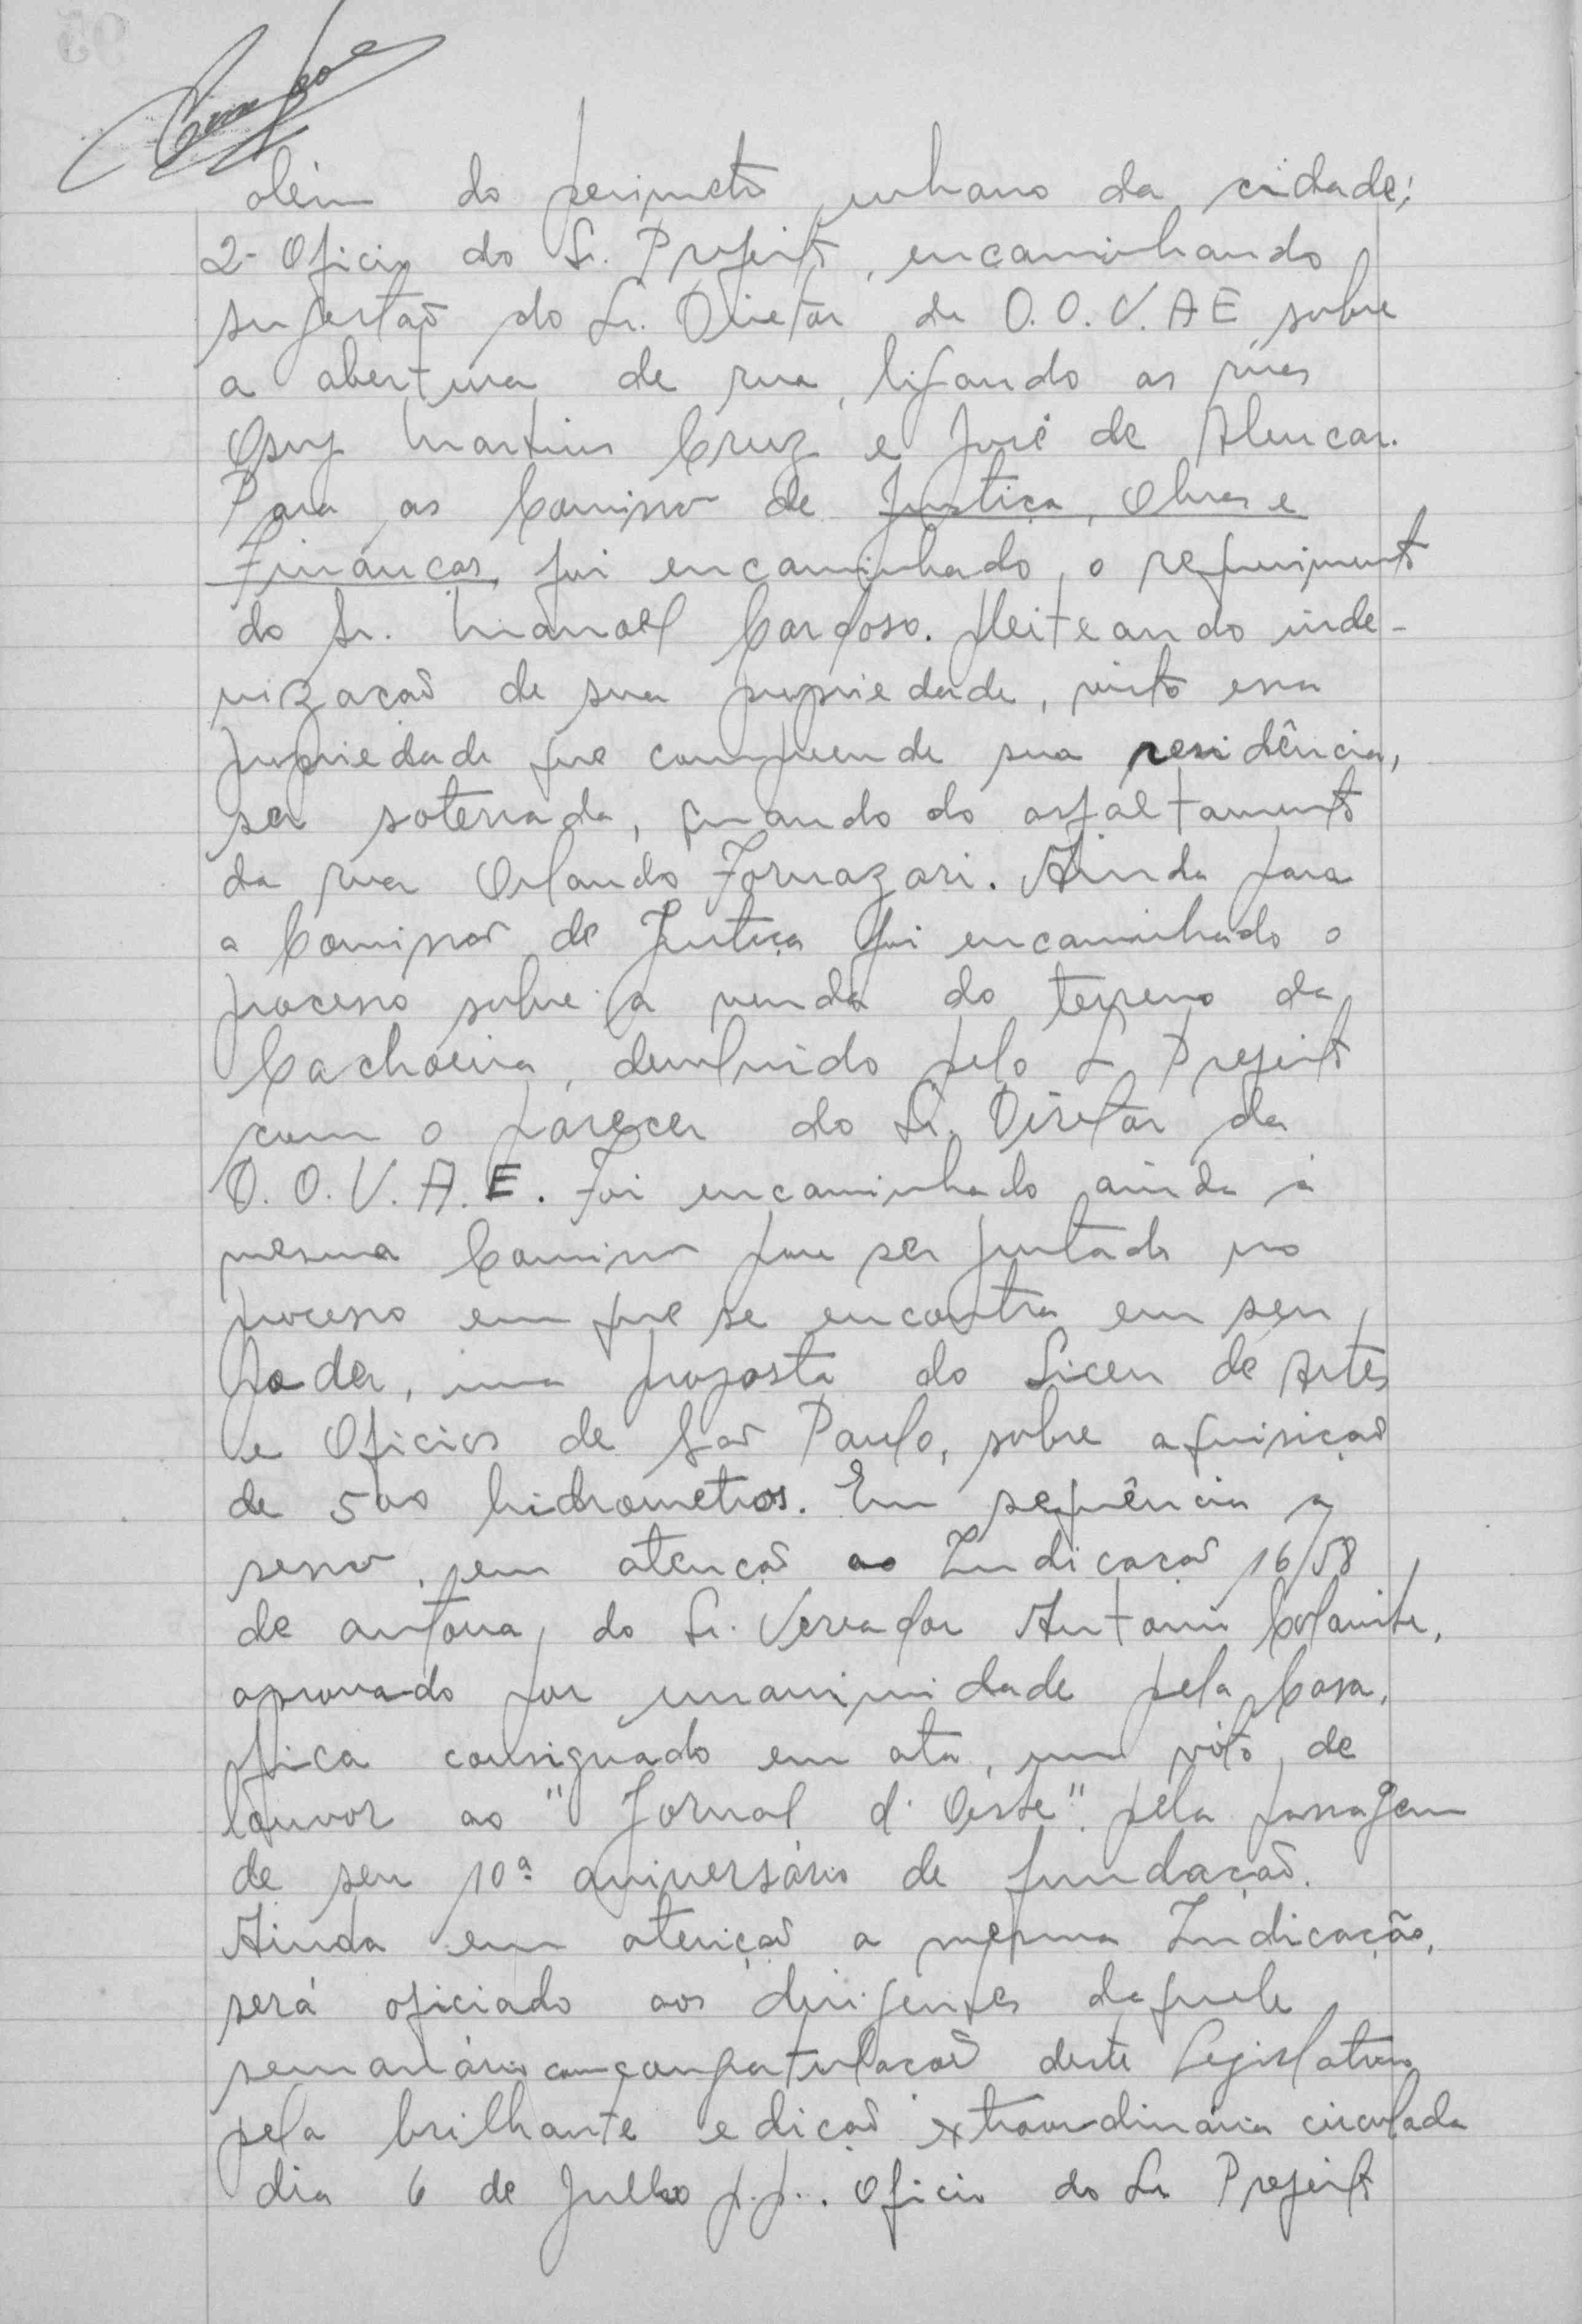 além do perimetro urbano da cidade;
2- Oficio do Sr. Prefeito, encaminhando
sugestão do Sr. Diretor da O.O.V.A E sobre
a abertura de rua, ligando as ruas
Osny Martins Cruz e José de Alencar.
Para as Comissão de Justiça, Obras e
Finanças, foi encaminhado, o requerimento
do Sr. Manoel Cardoso. pleiteando inde-
nização de sua propriedade, visto essa
propriedade que compreende sua residência,
ser soterrada, quando do asfaltamento
da rua Orlando Fornazari. Ainda para
a Comissão de Justiça foi encaminhado o
processo sobre a venda do terreno da
Cachoeira, devolvido pelo Sr Prefeito
com o parecer do Sr. Diretor da
O.O.V.A.E. Foi encaminhado ainda à
mesma Comissão para ser juntada no
processo em que se encontra em seu
poder, uma proposta do Liceu de Artes
e Oficios de São Paulo, sobre aquisição
de 500 hidrometros. Em sequência a
sessão, em atenção ao Indicação 16/58
de autoria, do Sr. Vereador Antonio
aprovado por unanimidade pela Casa,
fica consignado em ata, um vóto, de
louvor ao "Jornal d'Oeste". pela passagem
de seu 10ª aniversário de fundação.
Ainda em atenção a mesma Indicação,
será oficiado aos dirigentes daquele
semanário com congratulação deste Legislativo
pela brilhante edição extraordinária circulada
dia 6 de Julho p.p.. Oficio do Sr Prefeito